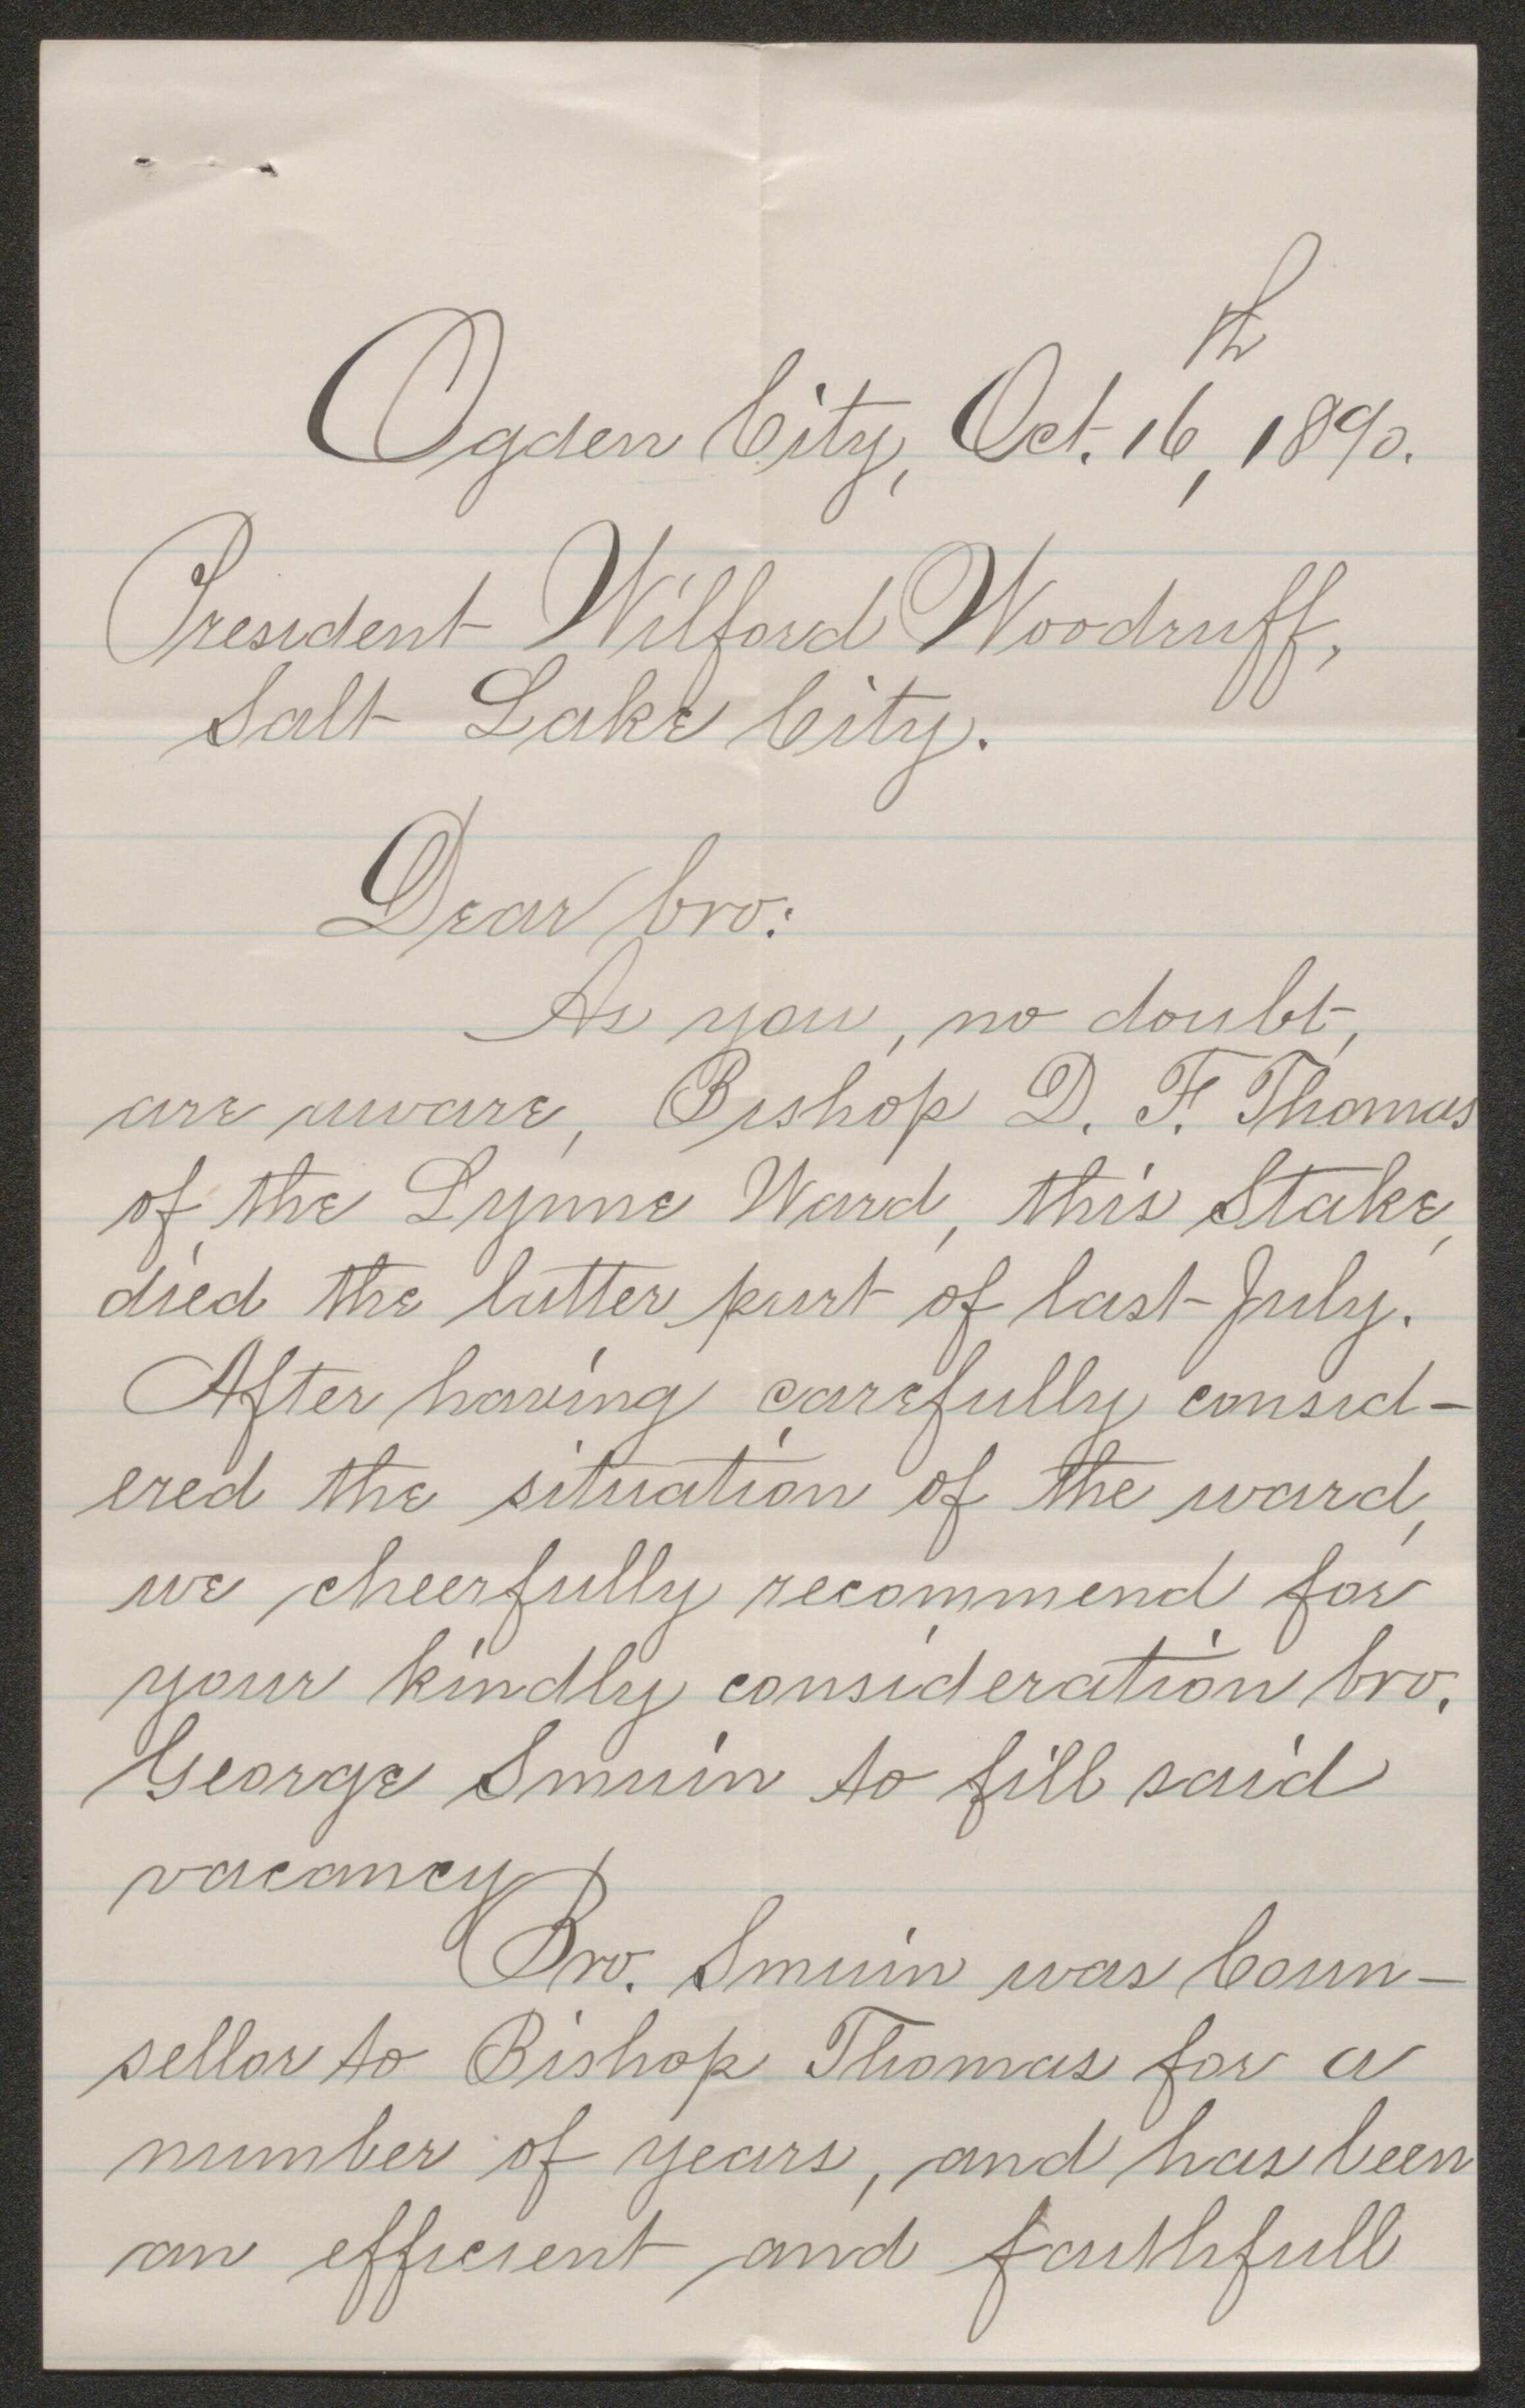 Ogden City, Oct. 16th, 1890.
President Wilford Woodruff,
Salt Lake City.
Dear bro:
As you, no doubt,
are aware, Bishop D. F. Thomas
of the Lynne Ward, this Stake,
died the latter part of last July.
After having carefully consid-
ered the situation of the ward,
we cheerfully recommend for
your kindly consideration bro.
George Smuin to fill said
vacancy
Bro. Smuin was Coun-
sellor to Bishop Thomas for a
number of years, and has been
an efficient and faithfull